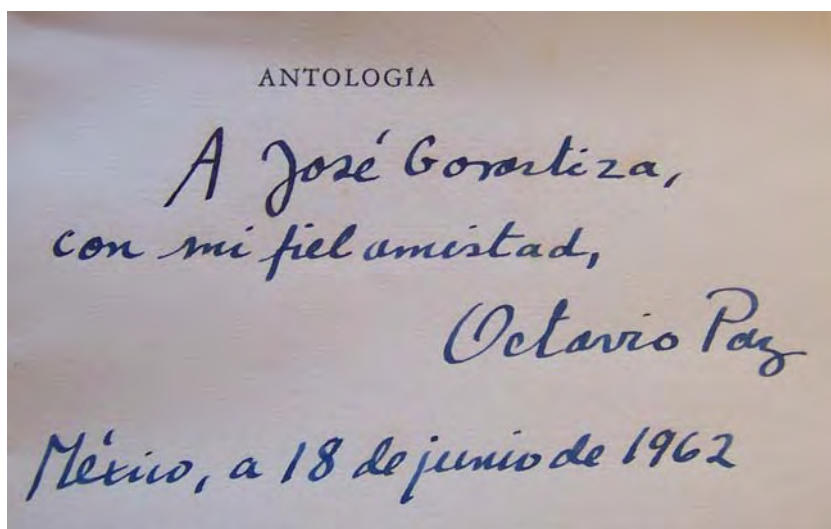 ANTOLOGÍA
A José Gorostiza,
con mi fiel amistad,
Octavio Paz
México, a 18 de junio de 1962